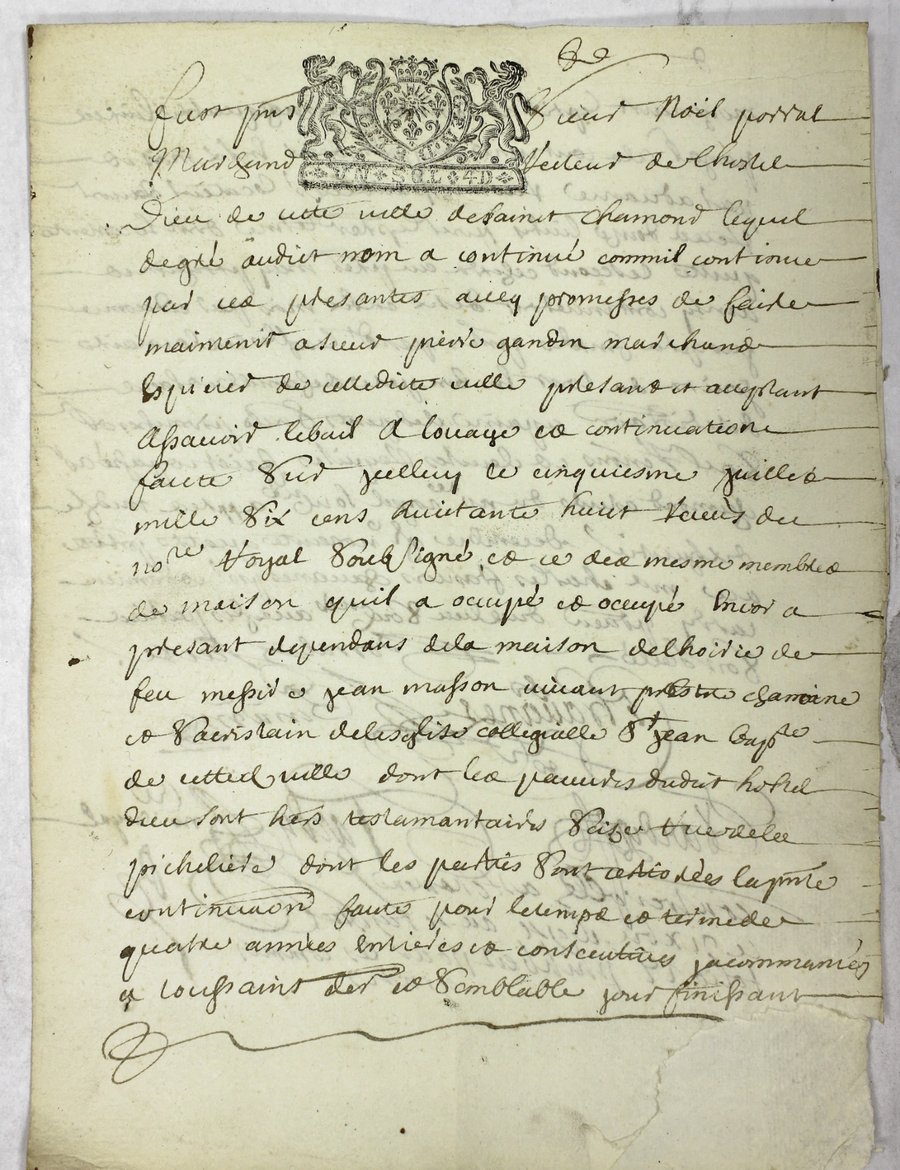 fust pnt Sieur Noël porral
GEN.D.LION
Marchand Recteur de lhostel
UN SOL 4D
Dieu de cette ville de Sainct Chamond lequel
de gré audict nom a continué comme il continue
par ces presantes avecq promesses de faire
maintenir a sieur pierre gandin marchand
Espicier de cettedicte ville presant et acceptant
Assavoir le bail A louage et continuation
faicte Sur jcelluy le cinquiesme juillet
mille Six cens huictante huict Receus du
nore Royal Soubsigné et ce des mesme membres
de maison quil a occupé et occupe Encor a
presant dependans de la maison de lhoirie de
feu messire jean masson vivant prestre chanoine
et Sacristain de lesglise collegialle St jean bapte
de cette d ville dont les pauvres dudict hostel
dieu sont hers testamantaires Scize Rue de la
picheliere dont les parties Sont la pnte
continuaon faicte pour le temps et terme de
quatre années Entieres et consecutives ja commancées
a toussaint der et Semblable jour finissant